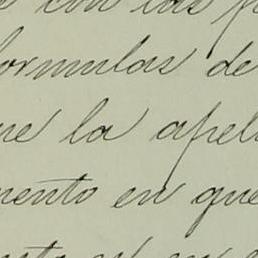 con las p
ormulas de
ue la apel
mento en que